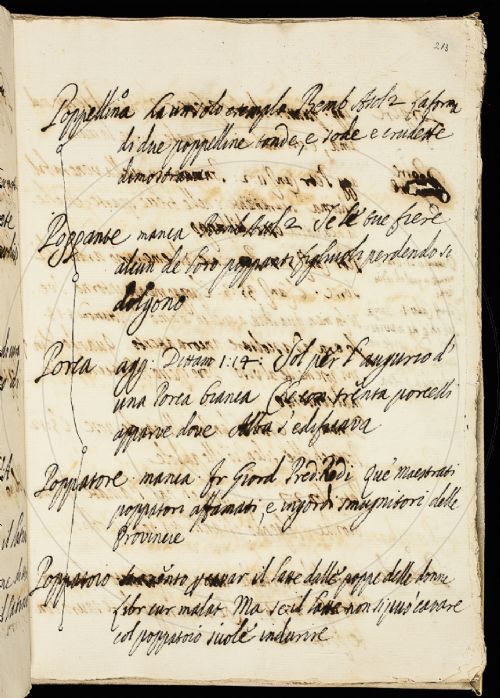 213
Poppellina ha un solo exemplo Bemb Asol 2 La forma
di due poppelline tonde, e sode e crudette
dimostrava
Poppante manca Bemb Asol 2 Se le tue fiere
alcun de loro poppanti figliuoli perdendo si
dolgono
Porca agg: Dittam 1:14: Sol per l'augurio d'
una Porca bianca Che con trenta porcelli
apparve dove Alba s'edificava
Poppatore manca Fr Giord Pred Redi Que' maestrati
poppatori affamati, e ingordi smugnitori delle
Provincie
Poppatoio cavar il late dalle poppe delle donne
Libr cur malat. Ma se il latte non si può cavare
col poppatoio suole indurire